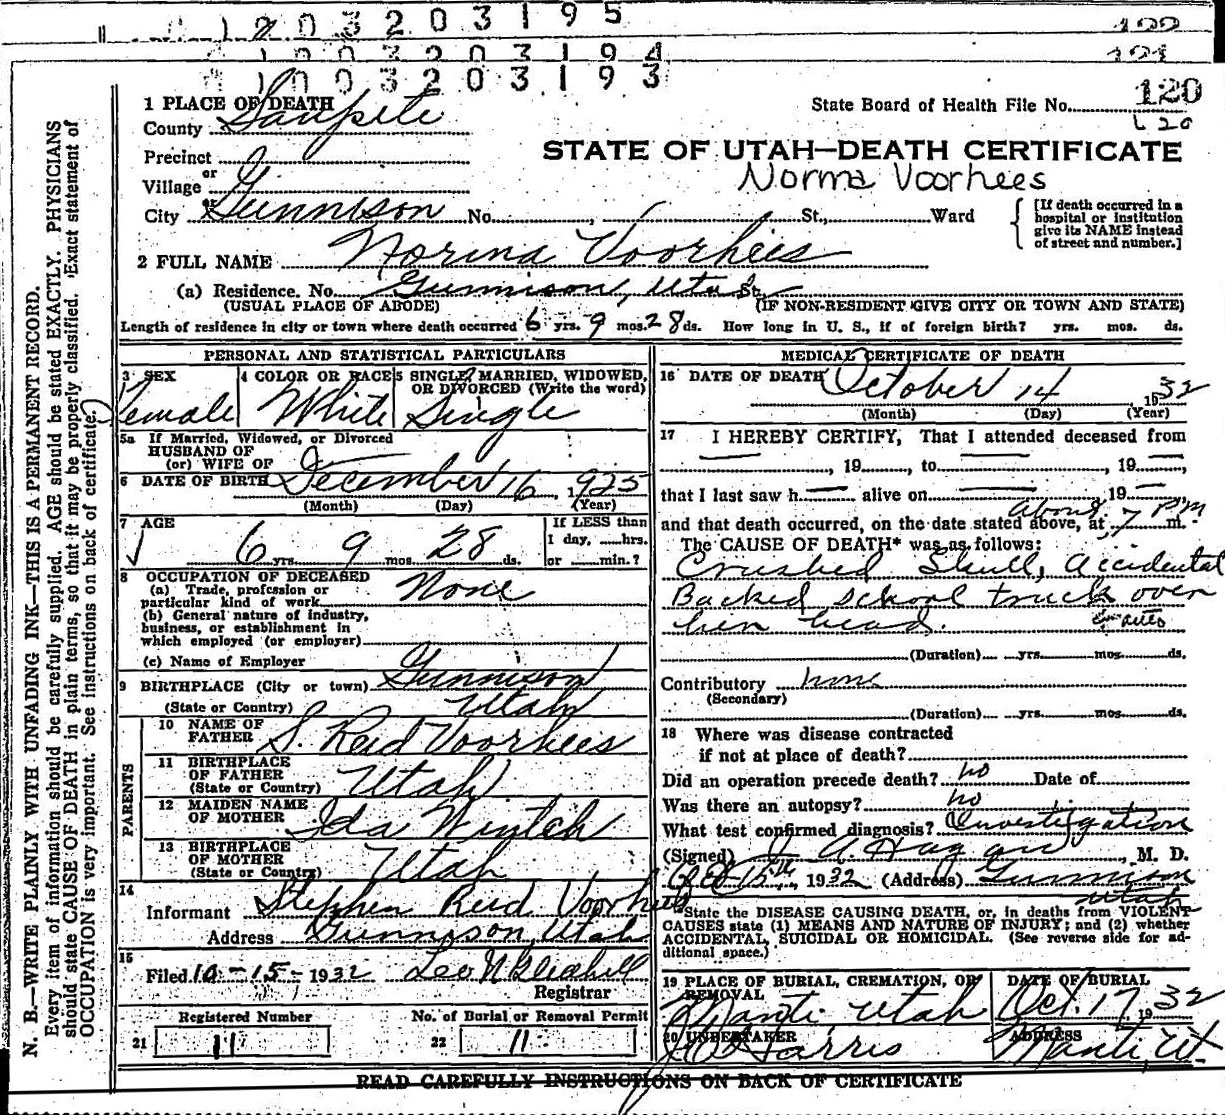 1 2 0 3 2 0 3 1 9 5
122
1 0 0 3 2 0 3 1 9 4
121
1 0 0 3 2 0 3 1 9 3
120
1 PLACE OF DEATH
County Sanpete
State Board of Health File No.
120
Precinct
STATE OF UTAH—DEATH CERTIFICATE
or
Village
Norma Voorhees
or
City Gunnison No. , St., Ward
[If death occurred in a hospital or institution give its NAME instead of street and number.]
2 FULL NAME Norma Voorhees
(a) Residence. No. Gunnison, Utah
(USUAL PLACE OF ABODE) (IF NON-RESIDENT GIVE CITY OR TOWN AND STATE)
Length of residence in city or town where death occurred 6 yrs. 9 mos. 28 ds. How long in U. S., if of foreign birth? yrs. mos. ds.
PERSONAL AND STATISTICAL PARTICULARS
3 SEX
Female
4 COLOR OR RACE
White
5 SINGLE, MARRIED, WIDOWED, OR DIVORCED (Write the word)
Single
5a If Married, Widowed, or Divorced
HUSBAND OF
(or) WIFE OF
6 DATE OF BIRTH December 16, 1925
(Month) (Day) (Year)
7 AGE
6 yrs. 9 mos. 28 ds.
If LESS than
1 day, ......hrs.
or ......min.?
8 OCCUPATION OF DECEASED
None
(a) Trade, profession or
particular kind of work
(b) General nature of industry,
business, or establishment in
which employed (or employer)
(c) Name of Employer
9 BIRTHPLACE (City or town) Gunnison
(State or Country) Utah
PARENTS
10 NAME OF FATHER S. Reid Voorhees
11 BIRTHPLACE OF FATHER (State or Country) Utah
12 MAIDEN NAME OF MOTHER Ida Wintch
13 BIRTHPLACE OF MOTHER (State or Country) Utah
14
Informant Stephen Reid Voorhees
Address Gunnison, Utah
15
Filed 10-15-1932 Leo N Gledhill
Registrar
Registered Number
21 11
No. of Burial or Removal Permit
22 11
MEDICAL CERTIFICATE OF DEATH
16 DATE OF DEATH October 14 1932
(Month) (Day) (Year)
17 I HEREBY CERTIFY, That I attended deceased from
, 19 , to , 19 ,
that I last saw h alive on , 19
and that death occurred, on the date stated above, at about 7 PM m.
The CAUSE OF DEATH* was as follows:
Crushed Skull, accidental
Backed school truck over
her head.
auto
(Duration) yrs. mos. ds.
Contributory none
(Secondary)
(Duration) yrs. mos. ds.
18 Where was disease contracted
if not at place of death?
Did an operation precede death? no Date of
Was there an autopsy? no
What test confirmed diagnosis? Investigation
(Signed) J. A. Hagan, M. D.
Oct 15th, 1932 (Address) Gunnison
Utah
*State the DISEASE CAUSING DEATH, or, in deaths from VIOLENT
CAUSES state (1) MEANS AND NATURE OF INJURY; and (2) whether
ACCIDENTAL, SUICIDAL OR HOMICIDAL. (See reverse side for additional space.)
19 PLACE OF BURIAL, CREMATION, OR REMOVAL
Manti Utah
DATE OF BURIAL
Oct. 17, 1932
20 UNDERTAKER
Harris
ADDRESS
Manti, Ut.
READ CAREFULLY INSTRUCTIONS ON BACK OF CERTIFICATE
N. B.—WRITE PLAINLY WITH UNFADING INK—THIS IS A PERMANENT RECORD.
Every item of information should be carefully supplied. AGE should be stated EXACTLY. PHYSICIANS
should state CAUSE OF DEATH in plain terms, so that it may be properly classified. Exact statement of
OCCUPATION is very important. See instructions on back of certificate.